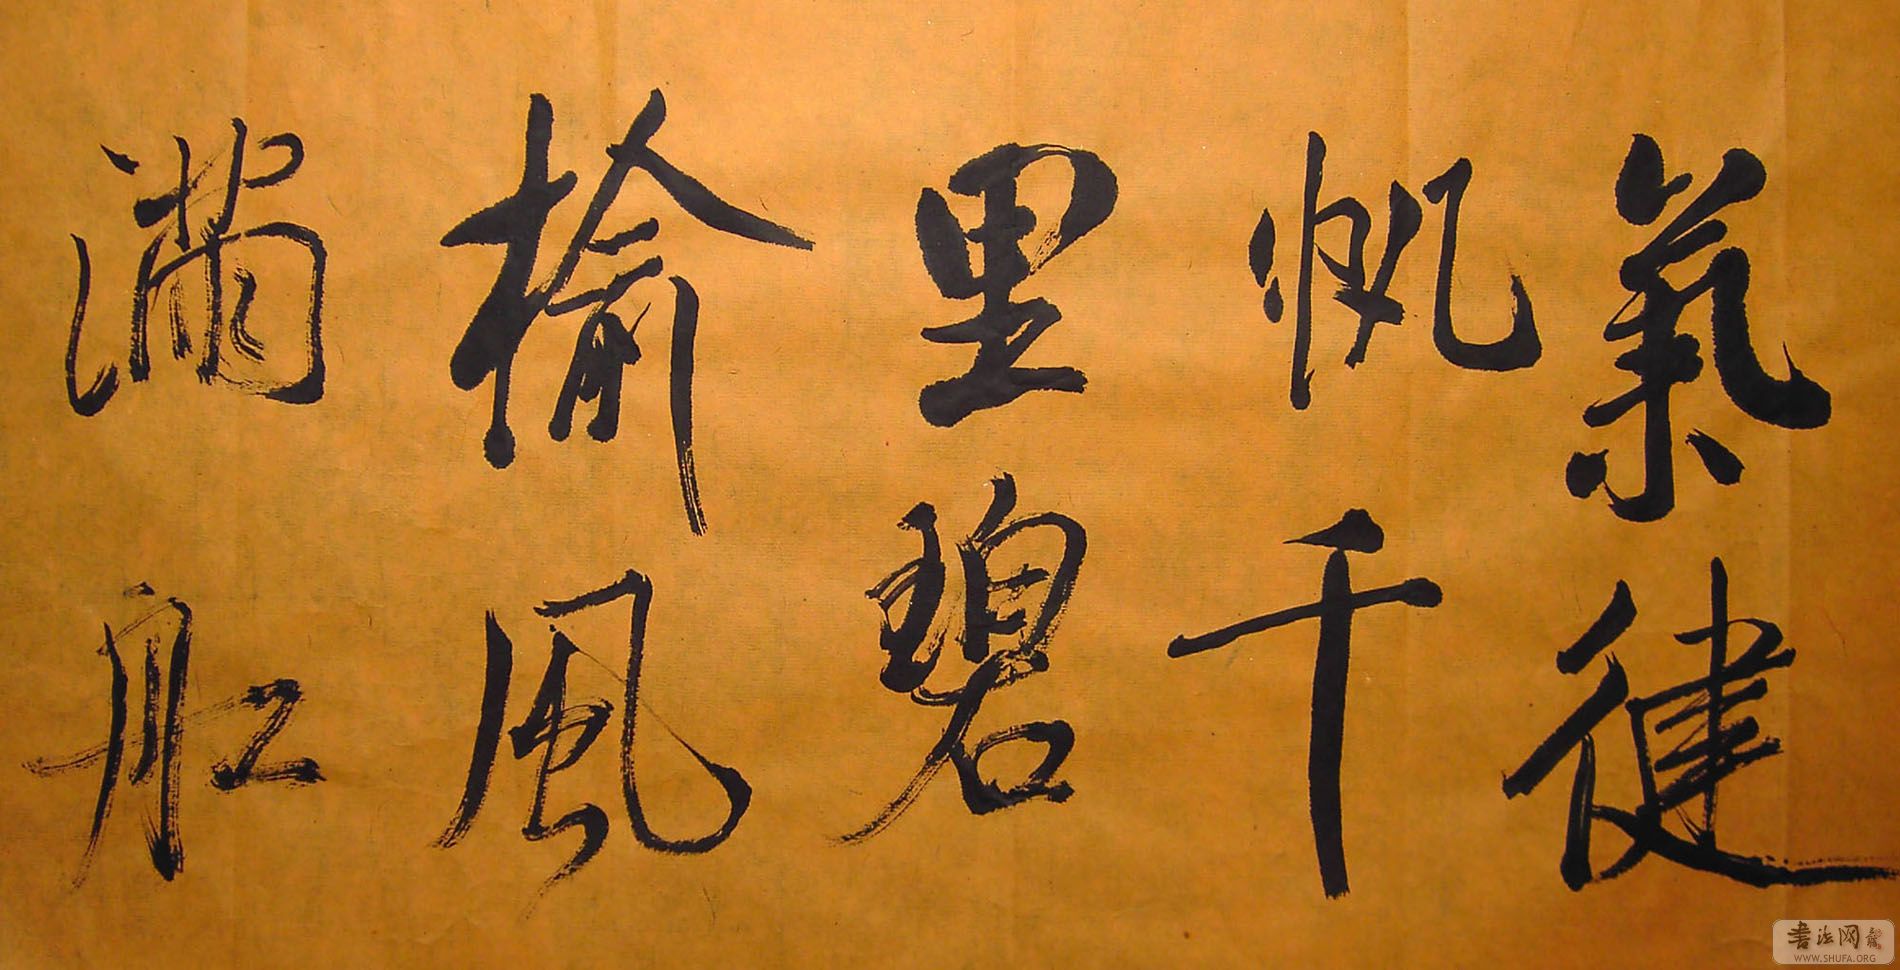 氣健
帆千
里碧
榆風
滿舡
書法网
WWW.SHUFA.ORG